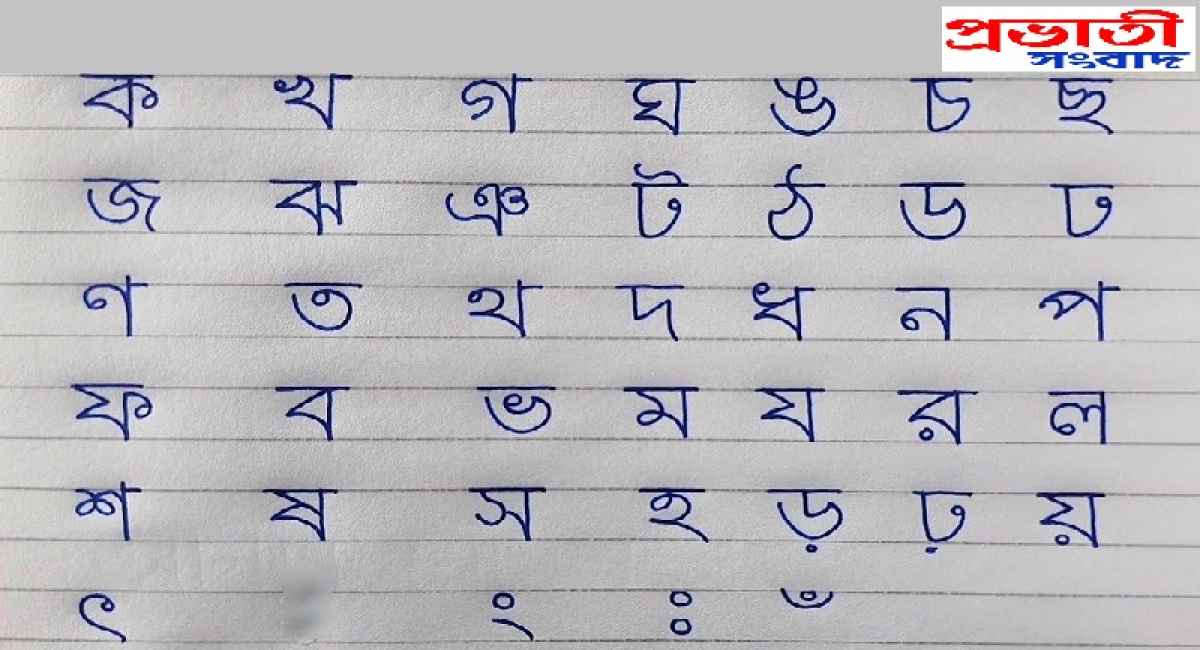 প্রভাতী
সংবাদ
ক খ গ ঘ ঙ চ ছ
জ ঝ ঞ ট ঠ ড ঢ
ণ ত থ দ ধ ন প
ফ ব ভ ম য র ল
শ ষ স হ ড় ঢ় য়
ৎ ং ঃ ঁ